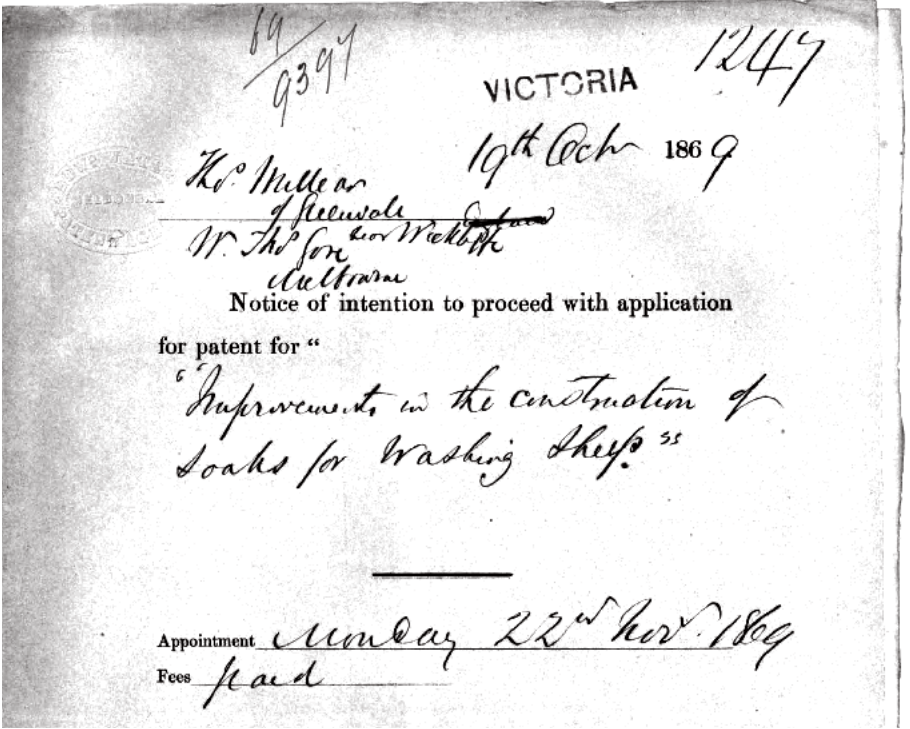 69/9397
1247
VICTORIA
19th Octr 1869
Thos. Millear
of Glenvale
W. Thos Gore near Wickliffe
Melbourne
Notice of intention to proceed with application
for patent for "
"Improvements in the construction of
soaks for Washing Sheep."
Appointment Monday 22nd Novr. 1869
Fees paid